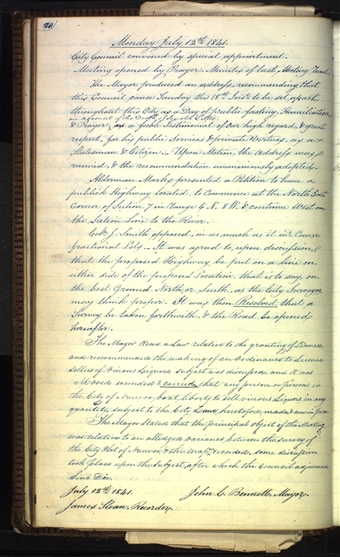 20
Monday July 12th 1841.
City Council convened by special appointment.
Meeting opened by Prayer. Minutes of last Meeting read.
The Mayor produced an address, recommending that
this Council cause Sunday the 18th Inst. to be set apart
throughout this City as a Day of public fasting, Humiliation
& Prayer, as a public Testimonial of our high regard, & great
respect, for his public Services & private Worth, as a
Statesman & Citizen. Upon Motion, the Address was
received, & the recommendation unanimously adopted.
Alderman Marks presented a Petition to have a
publick Highway located, to Commence at the North East
Corner of Section 7 in Range 6 N. 8 W. & continue West on
the Section Line to the River.
C. J. Smith opposed in as much as it wd. Cause
fractional Lots. It was agreed to, upon discussion,
that the proposed Highway be put on a line on
either side of the proposed Location, that is to say, on
the best Ground North, or South, as the City Surveyor
may think proper. It was then Resolved that a
Survey be taken forthwith, & the Road be opened
hereafter.
The Mayor Read a Law relative to the granting of Licenses,
and recommended the making of an Ordinance to License
sellers of Vinous Liquors subject was discussed and it was
Moved seconded & carried, that any person or persons in
the City of Nauvoo be at liberty to sell vinous Liquors in any
quantity, subject to the City Laws heretofore made & now in force
The Mayor Stated that the principal object of the Meeting
was relative to an alledged variance, between the survey of
the City Plot of Nauvoo & the recorded, some discussion
took place upon the Subject, after which the Council adjourned
Sine Die.
July 12th 1841. John C. Bennett Mayor.
James Sloan, Recorder.